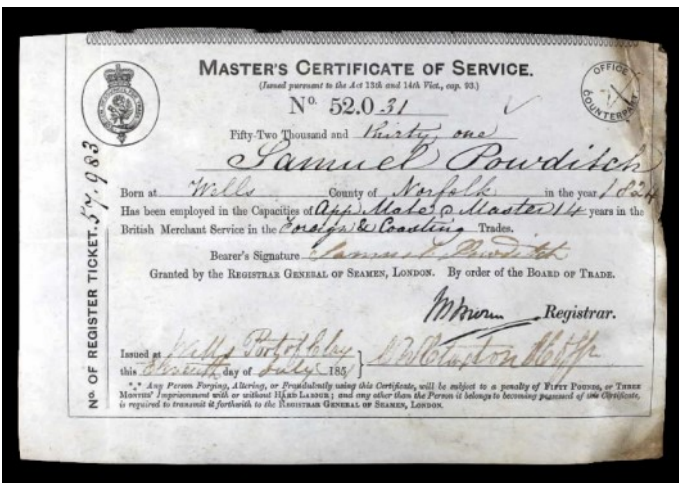 MASTER'S CERTIFICATE OF SERVICE.
(Issued pursuant to the Act 13th and 14th Vict., cap. 93.)
No. 52.031
OFFICE COUNTERPART
Fifty-Two Thousand and Thirty one
Samuel Powditch
Born at Wells County of Norfolk in the year 1824
Has been employed in the Capacities of App Mate & Master 14 years in the
British Merchant Service in the Foreign & Coasting Trades.
Bearer's Signature Samuel Powditch
Granted by the REGISTRAR GENERAL OF SEAMEN, LONDON. By order of the BOARD OF TRADE.
Registrar.
Issued at Wells Port of Clay
this day of July 185
*** Any Person Forging, Altering, or Fraudulently using this Certificate, will be subject to a penalty of FIFTY POUNDS, or THREE
MONTHS' Imprisonment with or without HARD LABOUR; and any other than the Person it belongs to becoming possessed of this Certificate,
is required to transmit it forthwith to the REGISTRAR GENERAL OF SEAMEN, LONDON.
No. OF REGISTER TICKET. 57.983